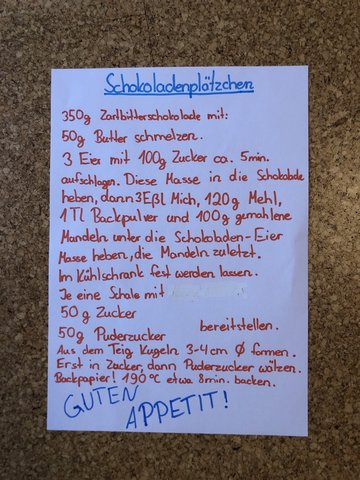 Schokoladenplätzchen
350g Zartbitterschokolade mit:
50g Butter schmelzen.
3 Eier mit 100g Zucker ca. 5min.
aufschlagen. Diese Masse in die Schokolade
heben, dann 3Eßl Mich, 120g Mehl,
1Tl Backpulver und 100g gemahlene
Mandeln unter die Schokoladen-Eier
Masse heben, die Mandeln zuletzt.
Im Kühlschrank fest werden lassen.
Je eine Schale mit
50g Zucker
50g Puderzucker bereitstellen.
Aus dem Teig Kugeln 3-4cm Ø formen.
Erst in Zucker, dann Puderzucker wälzen.
Backpapier! 190°C etwa 8min. backen.
GUTEN
APPETIT!